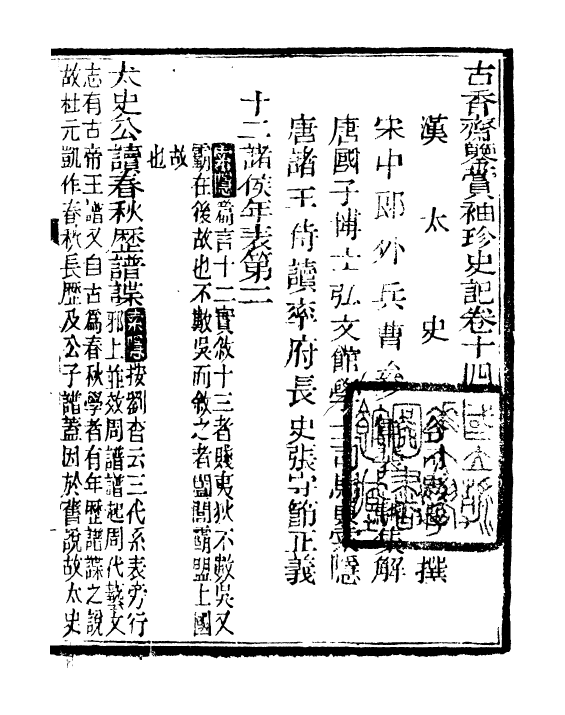 古香齋鑒賞袖珍史記卷十四
漢太史撰
宋中郎外兵曹參集解
唐國子博士弘文館學士司馬貞索隱
唐諸王侍讀率府長史張守節正義
十二諸侯年表第二
索隱篇言十二實敘十三者賤夷狄不數吳又
霸在後故也不數吳而敘之者盟閭霸盟上國
故
也
太史公讀春秋歷譜諜索隱按劉杳云三代系表旁行
邪上並效周譜譜起周代藝文
志有古帝王譜又自古爲春秋學者有年歷譜諜之說
故杜元凱作春秋長歷及公子譜蓋因於舊說故太史